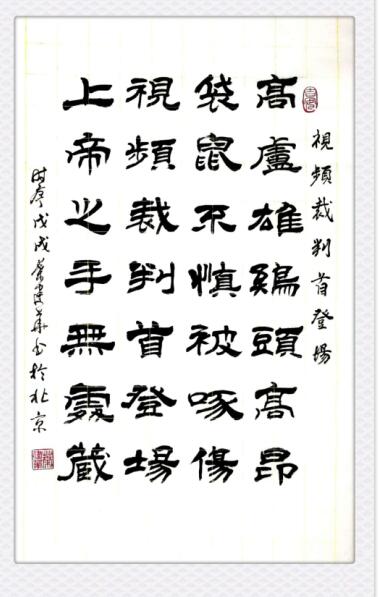 視頻裁判首登場
高盧雄鷄頭高昂
袋鼠不慎被啄傷
視頻裁判首登場
上帝之手無處藏
時序戊戌 建華書於北京